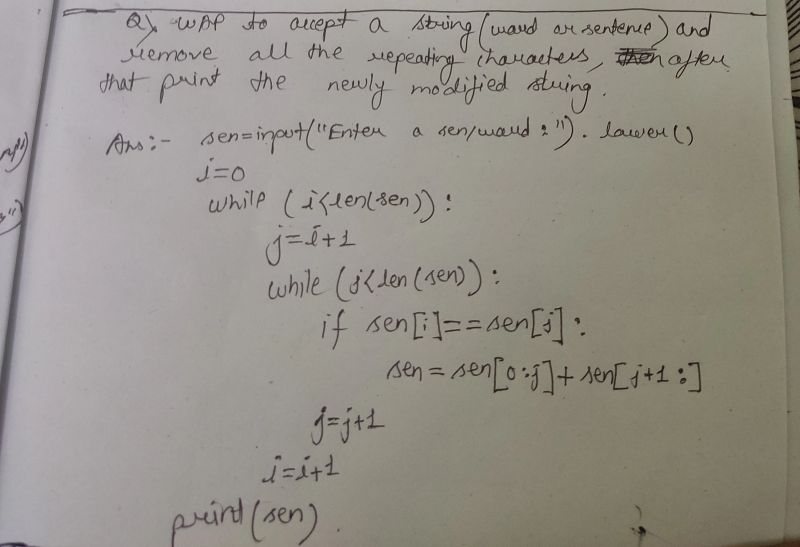 Q) WAP to accept a string (word or sentence) and
remove all the repeating characters, after
that print the newly modified string.
Ans:- sen=input("Enter a sen/word:").lower()
i=0
while (i<len(sen)):
j=i+1
while (j<len(sen)):
if sen[i]==sen[j]:
sen=sen[0:j]+sen[j+1:]
j=j+1
i=i+1
print(sen).